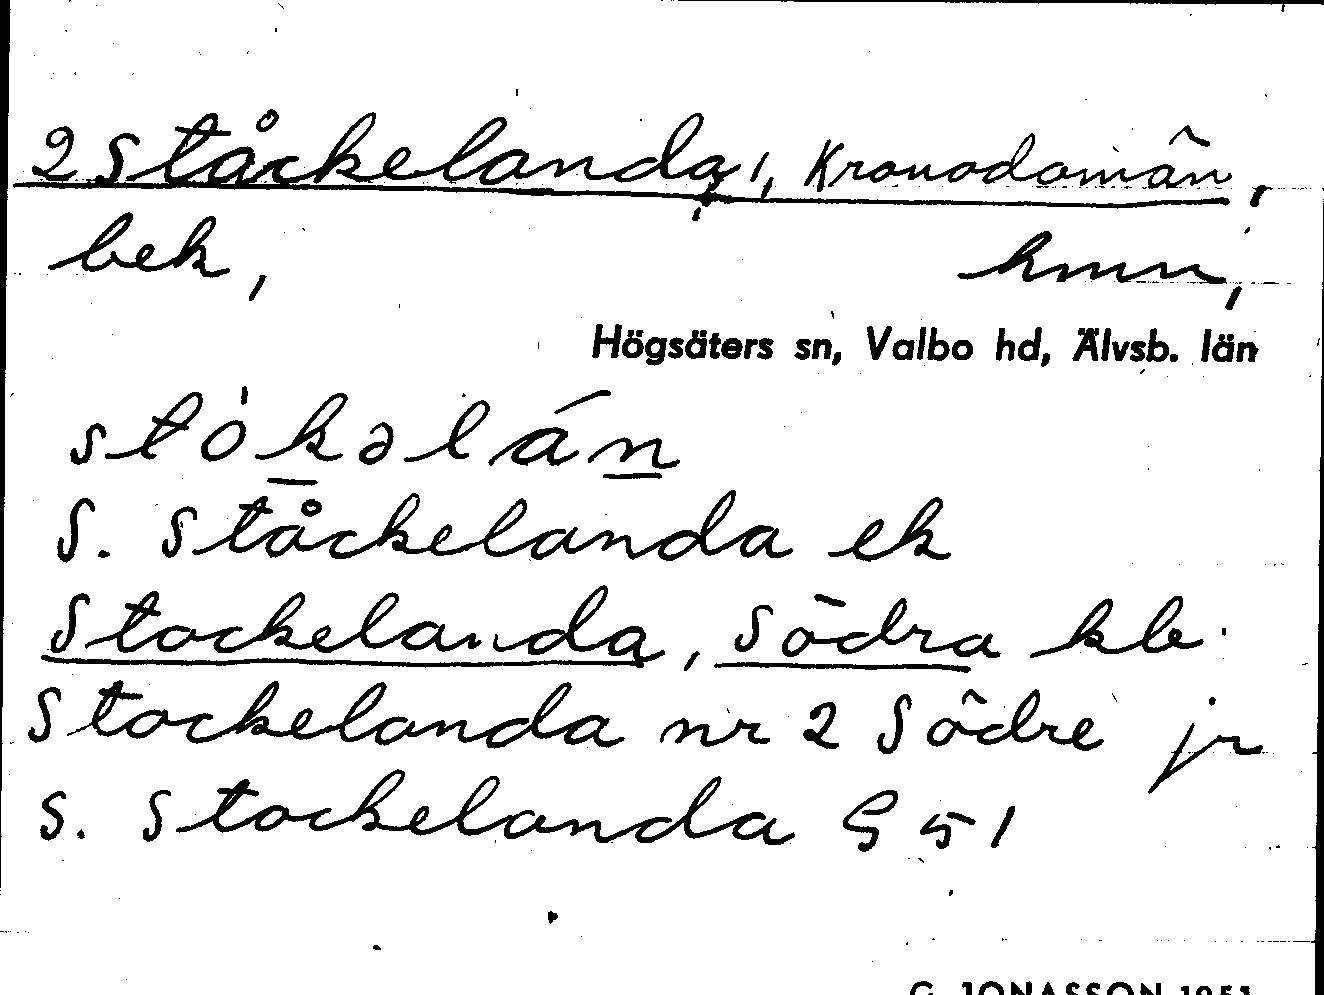 2 Ståckelanda, 1, Kronodomän,
bek, hmn,
Högsäters sn, Valbo hd, Älvsb. län
stò̱kəláṉ
S. Ståckelanda ek
Stockelanda, Södra kb
Stockelanda nr 2 Södre jr
S. Stockelanda G 51
G. JONASSON 1951